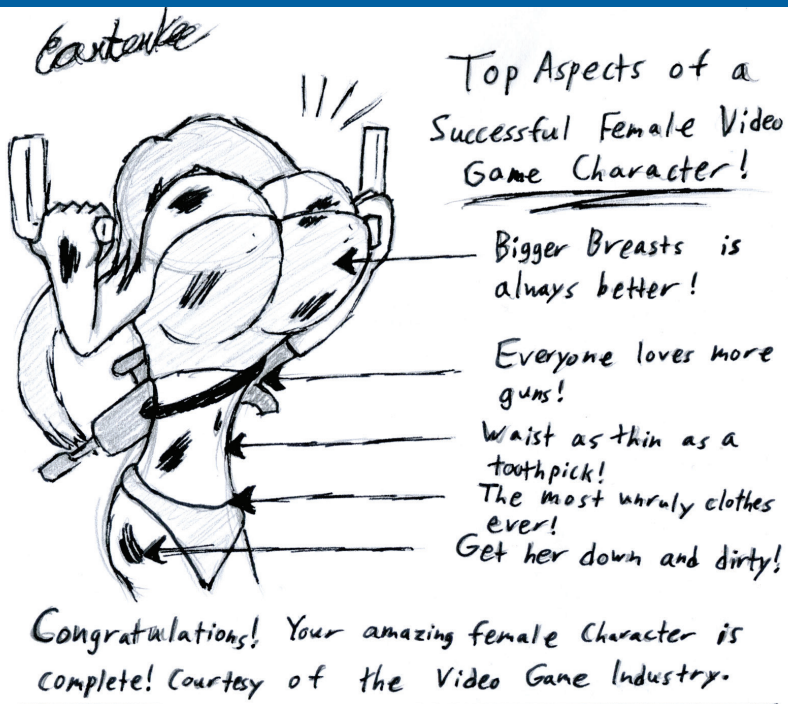 Top Aspects of a
Successful Female Video
Game Character!
Bigger Breasts is
always better!
Everyone loves more
guns!
Waist as thin as a
toothpick!
The most unruly clothes
ever!
Get her down and dirty!
Congratulations! Your amazing female Character is
complete! Courtesy of the Video Game Industry.